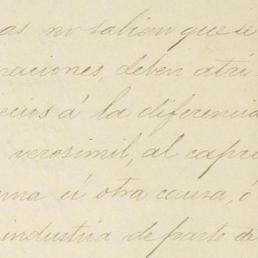 as no sabian que si
naciones, deben atri
ecios á la diferencia
verosimil, al capri
una ú otra causa, ó
industria de parte de